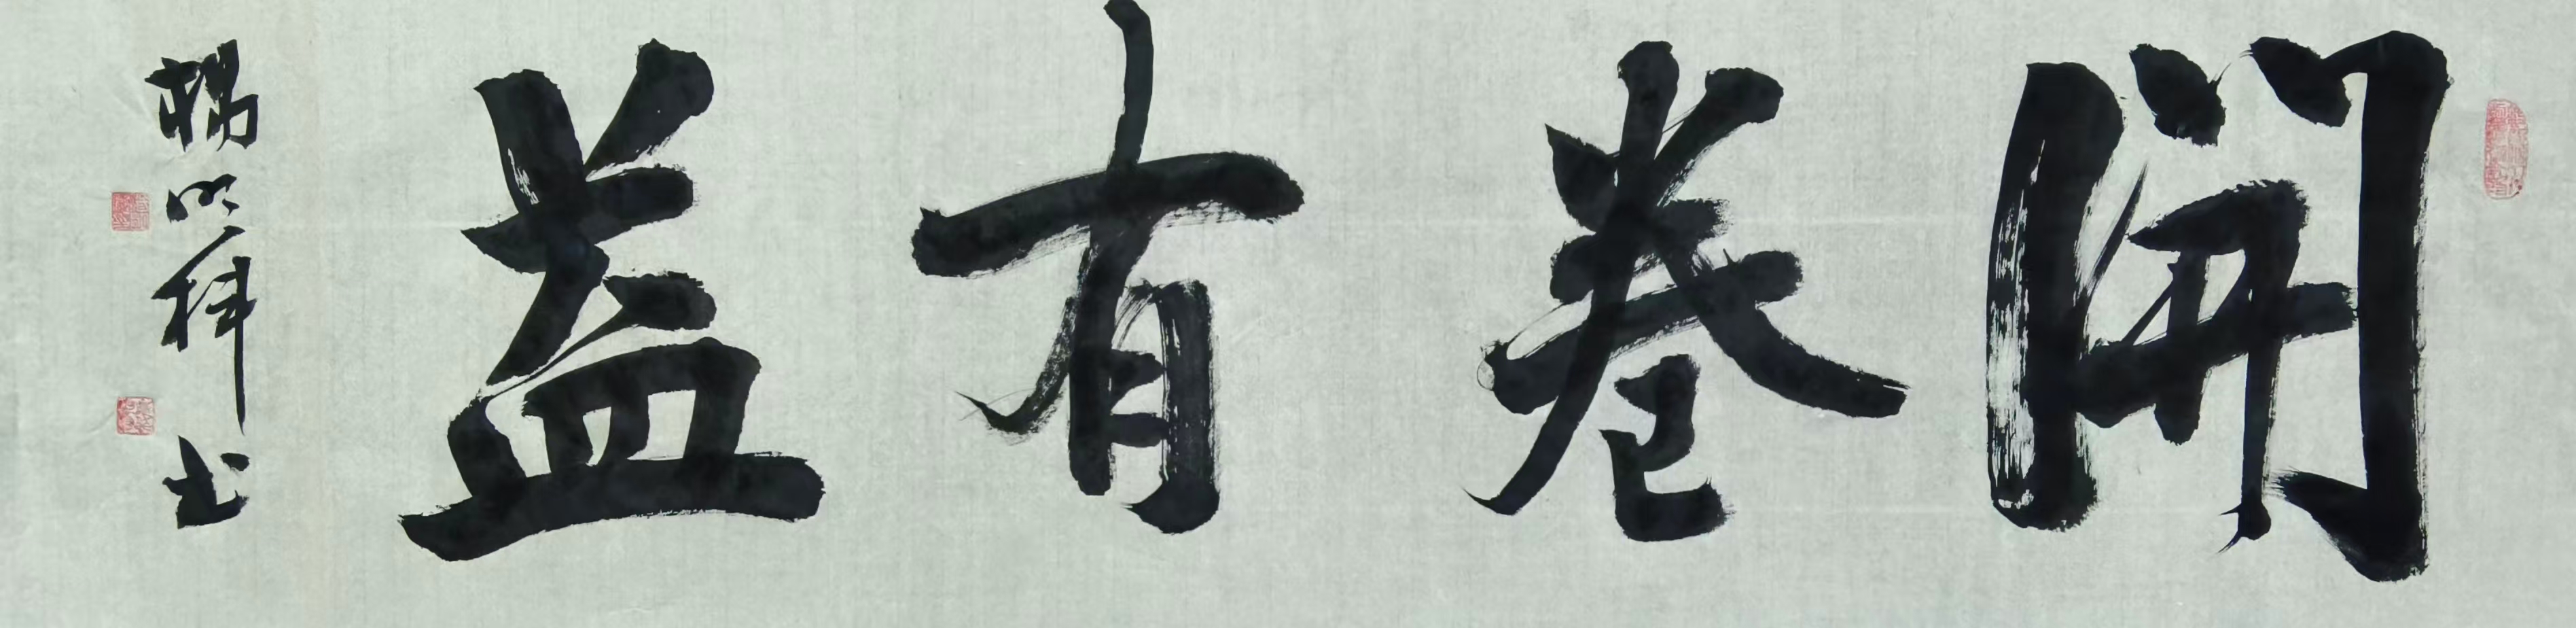 開卷有益
楊以祥书